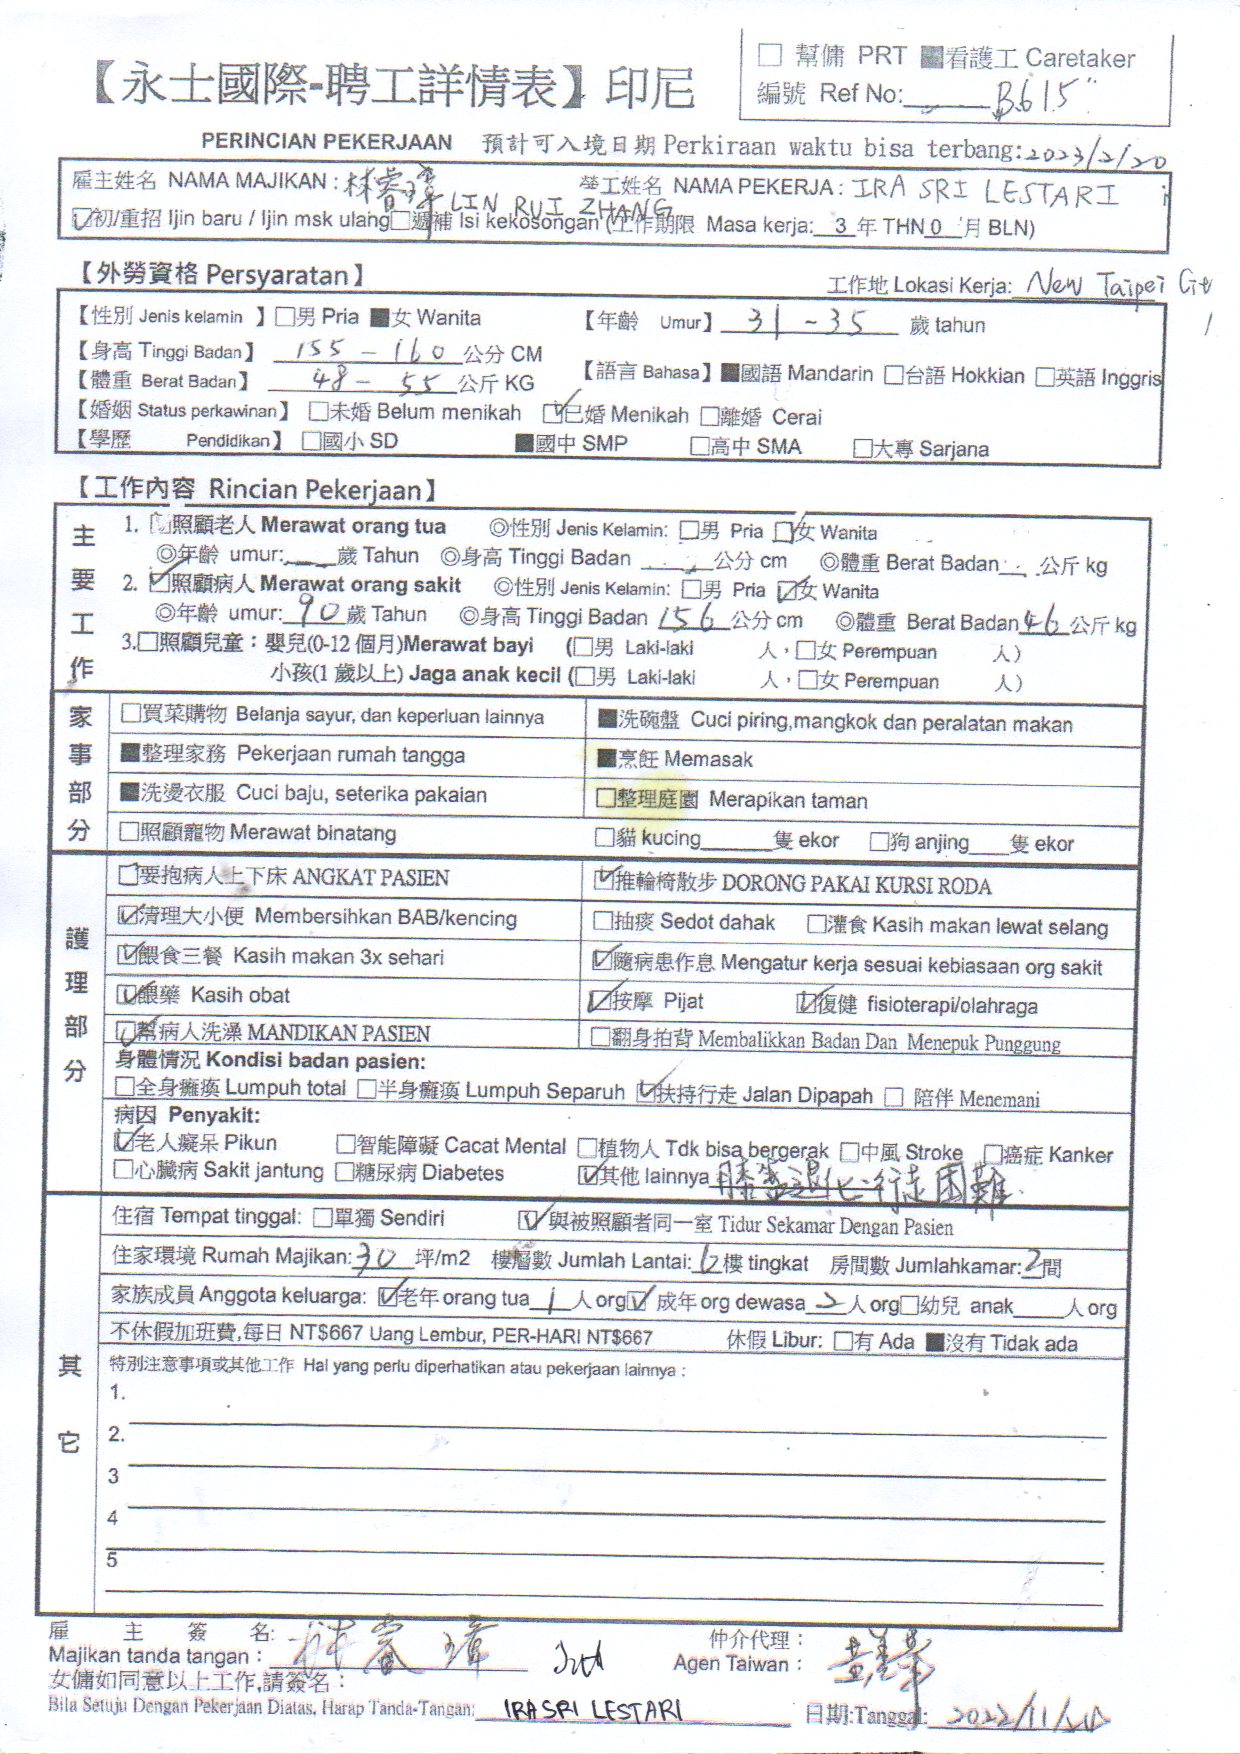 □ 幫傭 PRT ■看護工 Caretaker
【永士國際-聘工詳情表】印尼
編號 Ref No: B615
PERINCIAN PEKERJAAN 預計可入境日期 Perkiraan waktu bisa terbang:2023/2/20
雇主姓名 NAMA MAJIKAN : 林睿璋 LIN RUI ZHANG 勞工姓名 NAMA PEKERJA : IRA SRI LESTARI
☑初/重招 Ijin baru / Ijin msk ulang□遞補 Isi kekosongan (工作期限 Masa kerja: 3 年 THN 0 月 BLN)
【外勞資格 Persyaratan】 工作地 Lokasi Kerja: New Taipei
【性別 Jenis kelamin 】□男 Pria ■女 Wanita 【年齡 Umur】 31 - 35 歲 tahun
【身高 Tinggi Badan】 155 - 160 公分 CM
【體重 Berat Badan】 48 - 55 公斤 KG 【語言 Bahasa】■國語 Mandarin □台語 Hokkian □英語 Inggris
【婚姻 Status perkawinan】 □未婚 Belum menikah ☑已婚 Menikah □離婚 Cerai
【學歷 Pendidikan】 □國小 SD ■國中 SMP □高中 SMA □大專 Sarjana
【工作內容 Rincian Pekerjaan】
主要工作
1. □照顧老人 Merawat orang tua ◎性別 Jenis Kelamin: □男 Pria □女 Wanita
◎年齡 umur:____歲 Tahun ◎身高 Tinggi Badan ______公分 cm ◎體重 Berat Badan___ 公斤 kg
2. ☑照顧病人 Merawat orang sakit ◎性別 Jenis Kelamin: □男 Pria ☑女 Wanita
◎年齡 umur: 90 歲 Tahun ◎身高 Tinggi Badan 156 公分 cm ◎體重 Berat Badan 46 公斤 kg
3.□照顧兒童：嬰兒(0-12 個月)Merawat bayi (□男 Laki-laki 人，□女 Perempuan 人)
小孩(1 歲以上) Jaga anak kecil (□男 Laki-laki 人，□女 Perempuan 人)
家事部分
□買菜購物 Belanja sayur, dan keperluan lainnya ■洗碗盤 Cuci piring,mangkok dan peralatan makan
■整理家務 Pekerjaan rumah tangga ■烹飪 Memasak
■洗燙衣服 Cuci baju, seterika pakaian □整理庭園 Merapikan taman
□照顧寵物 Merawat binatang □貓 kucing______隻 ekor □狗 anjing___隻 ekor
護理部分
□要抱病人上下床 ANGKAT PASIEN ☑推輪椅散步 DORONG PAKAI KURSI RODA
☑清理大小便 Membersihkan BAB/kencing □抽痰 Sedot dahak □灌食 Kasih makan lewat selang
☑餵食三餐 Kasih makan 3x sehari ☑隨病患作息 Mengatur kerja sesuai kebiasaan org sakit
☑餵藥 Kasih obat ☑按摩 Pijat ☑復健 fisioterapi/olahraga
☑幫病人洗澡 MANDIKAN PASIEN □翻身拍背 Membalikkan Badan Dan Menepuk Punggung
身體情況 Kondisi badan pasien:
□全身癱瘓 Lumpuh total □半身癱瘓 Lumpuh Separuh ☑扶持行走 Jalan Dipapah □ 陪伴 Menemani
病因 Penyakit:
☑老人癡呆 Pikun □智能障礙 Cacat Mental □植物人 Tdk bisa bergerak □中風 Stroke □癌症 Kanker
□心臟病 Sakit jantung □糖尿病 Diabetes ☑其他 lainnya 膝蓋退化行徒困難
其它
住宿 Tempat tinggal: □單獨 Sendiri ☑與被照顧者同一室 Tidur Sekamar Dengan Pasien
住家環境 Rumah Majikan: 30 坪/m2 樓層數 Jumlah Lantai: 6 樓 tingkat 房間數 Jumlahkamar: 2 間
家族成員 Anggota keluarga: ☑老年 orang tua 1 人 org☑成年 org dewasa 2 人 org□幼兒 anak____人 org
不休假加班費,每日 NT$667 Uang Lembur, PER-HARI NT$667 休假 Libur: □有 Ada ■沒有 Tidak ada
特別注意事項或其他工作 Hal yang perlu diperhatikan atau pekerjaan lainnya :
1.
2.
3
4
5
雇主簽名: 林睿璋 仲介代理：
Majikan tanda tangan : Agen Taiwan :
女傭如同意以上工作,請簽名：
Bila Setuju Dengan Pekerjaan Diatas, Harap Tanda-Tangan: IRA SRI LESTARI 日期:Tanggal: 2022/11/